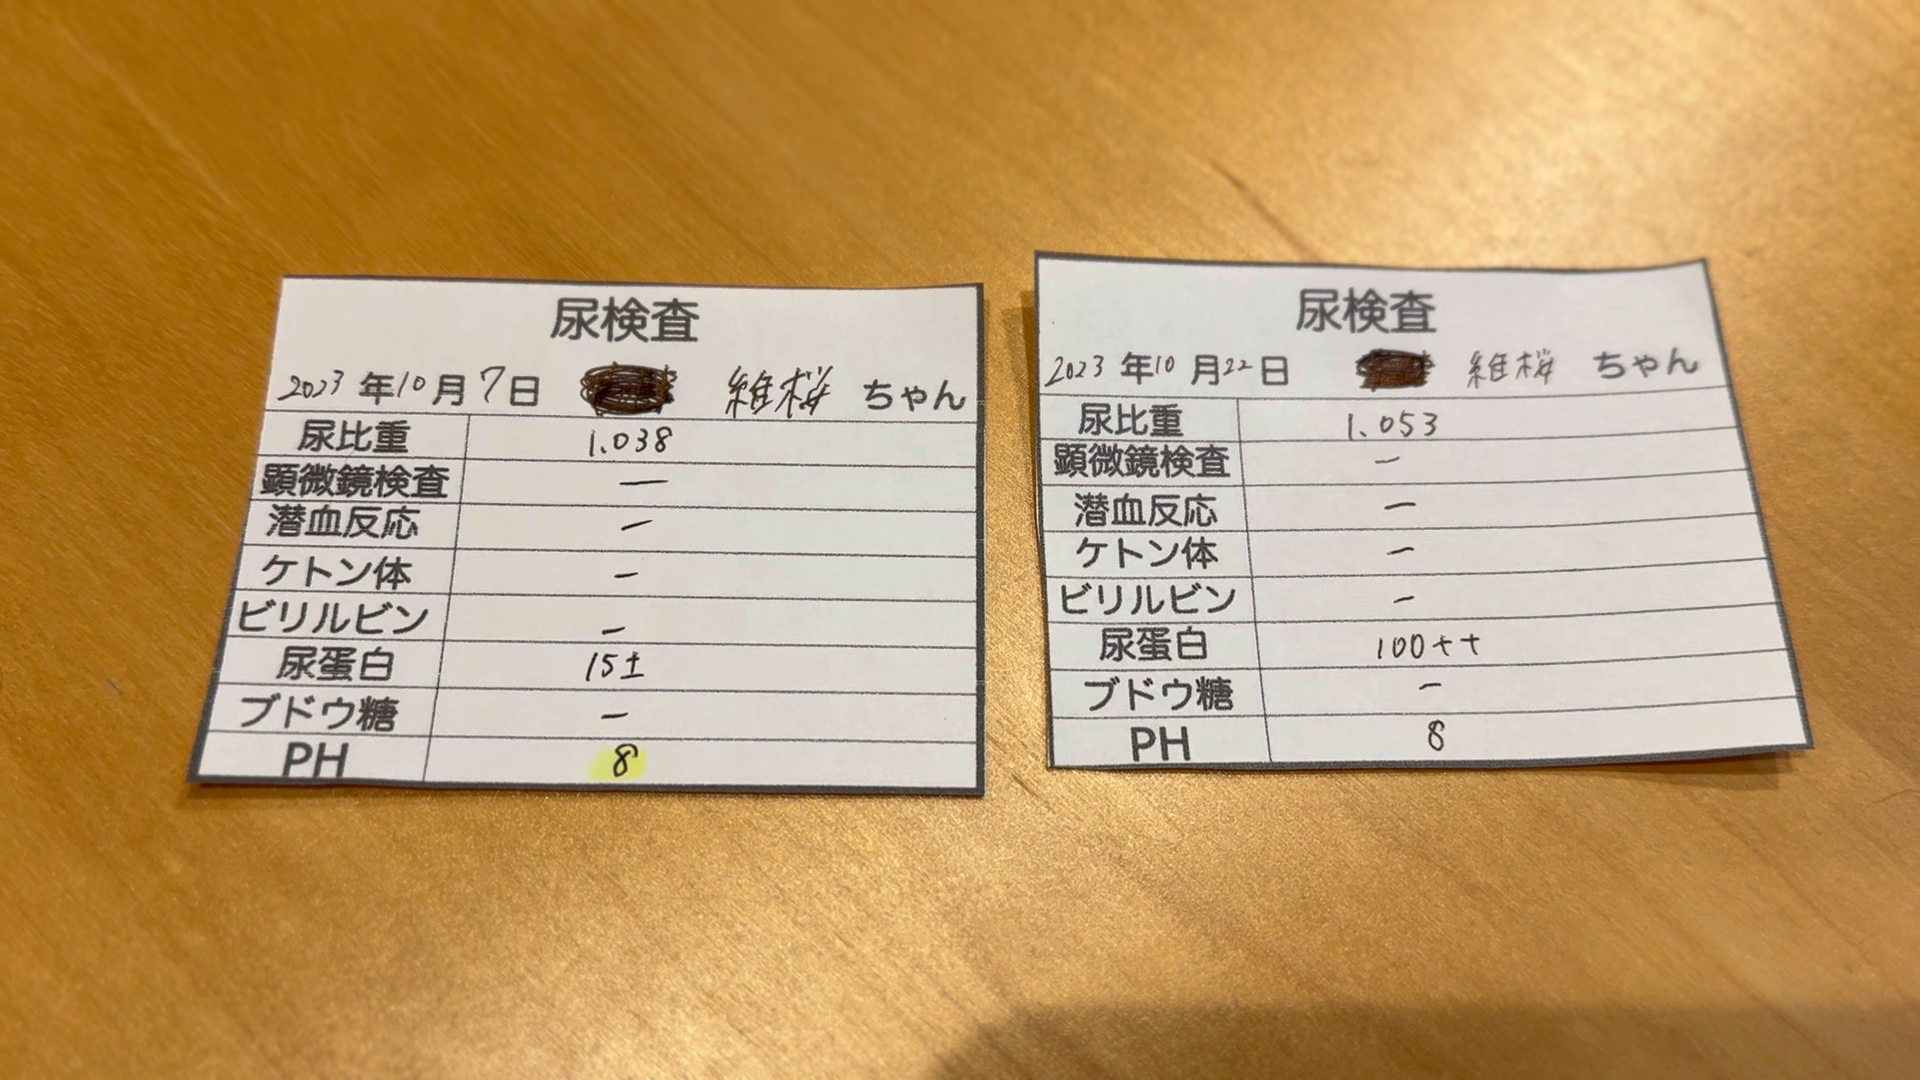 尿検査
2023 年10 月 7 日 維桜 ちゃん
尿比重 1.038
顕微鏡検査 −
潜血反応 −
ケトン体 −
ビリルビン −
尿蛋白 15±
ブドウ糖 −
PH 8
尿検査
2023 年10 月22日 維桜 ちゃん
尿比重 1.053
顕微鏡検査 −
潜血反応 −
ケトン体 −
ビリルビン −
尿蛋白 100++
ブドウ糖 −
PH 8